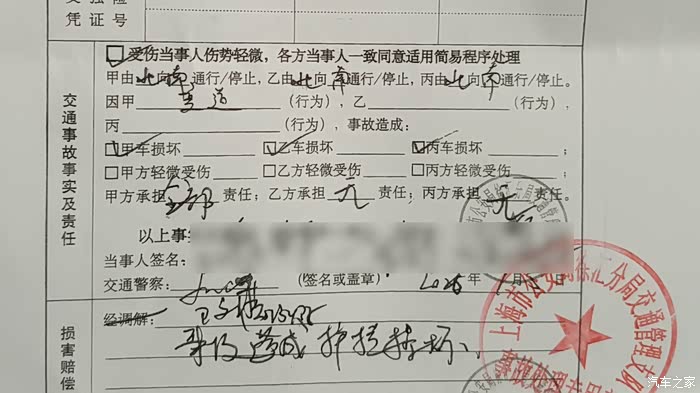 凭证号
交通事故事实及责任
受伤当事人伤势轻微，各方当事人一致同意适用简易程序处理
甲由北向南通行/停止，乙由北向南通行/停止，丙由北向南通行/停止。
因甲 变道 (行为)，乙 (行为)，
丙 (行为)，事故造成：
甲车损坏 ；乙车损坏 ；丙车损坏 ；
甲方轻微受伤 ；乙方轻微受伤 ；丙方轻微受伤 ；
甲方承担 全部 责任；乙方承担 无 责任；丙方承担 无 责任。
以上事实
当事人签名：
交通警察： (签名或盖章) 年
损害赔偿
经调解：
事故造成护栏损坏、
上海市公安局徐汇分局交通管理支队
汽车之家